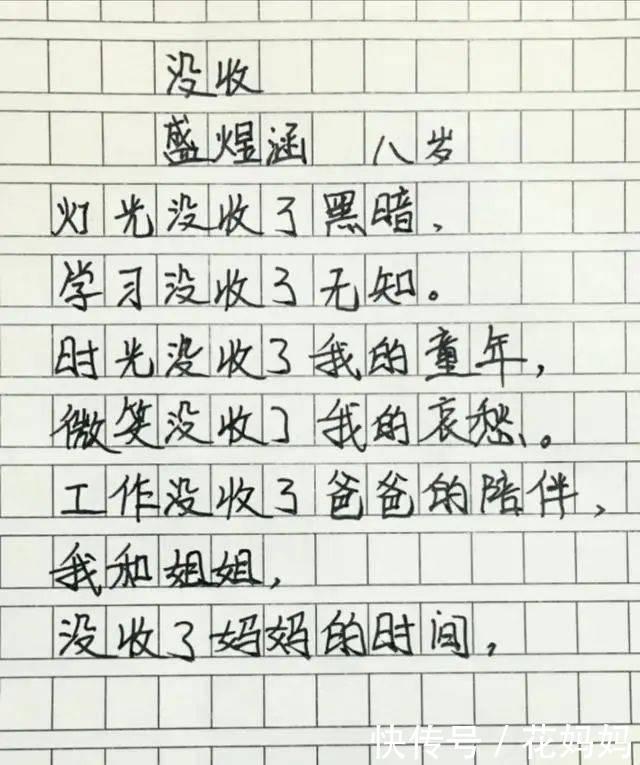 没收
盛煜涵 八岁
灯光没收了黑暗、
学习没收了无知。
时光没收了我的童年,
微笑没收了我的哀愁。
工作没收了爸爸的陪伴,
我和姐姐,
没收了妈妈的时间,
快传号 / 花妈妈